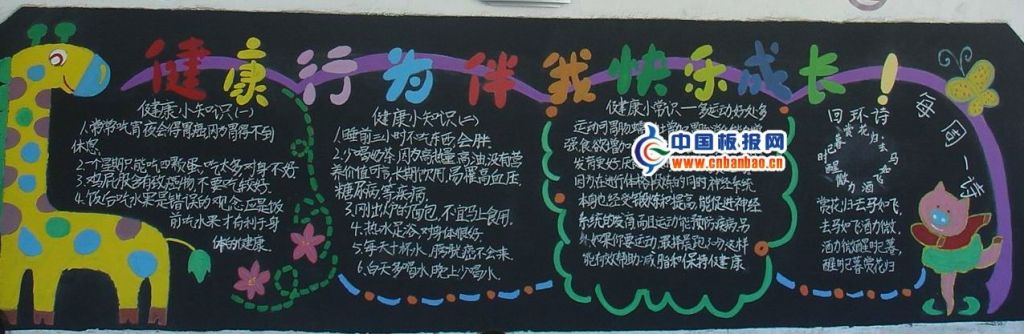 健康行为伴我快乐成长！
健康小知识(一)
1.常常吃宵夜会得胃癌,因为胃得不到
休息
2.一个星期只能吃四颗蛋,吃太多对身不好
3.鸡屁股有致癌物不要吃较好.
4.饭后吃水果是错误的观念,应是饭
前吃水果才有利于身
体的健康
健康小知识(二)
1.睡前三小时不吃东西会胖.
2.少喝奶茶,因为高热量高油,没有营
养价值可言,长期饮用,易罹高血压.
糖尿病等疾病.
3.刚出炉的面包,不宜马上食用.
4.热水足浴,对身体很好
5.每天十杯水,膀胱癌不会来.
6.白天多喝水,晚上少喝水.
健康小常识——多运动好处多
运动可帮助
强食欲
发育更好
因为在进行体格锻炼的同时,神经系统
本身也经受锻炼和提高,能促进神经
系统的发育,而且运动能预防疾病,另
外如果你要运动,最好晨跑,
能有效帮助减脂和保持健康
中国板报网
www.cnbanbao.cn
每周一诗
回环诗
赏花归去马如飞
酒力微醒时已暮
赏花归去马如飞,
去马如飞酒力微,
酒力微醒时已暮,
醒时已暮赏花归